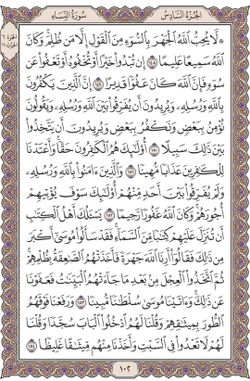 الجزء السادس
سورة النساء
۞ لَّا يُحِبُّ ٱللَّهُ ٱلْجَهْرَ بِٱلسُّوٓءِ مِنَ ٱلْقَوْلِ إِلَّا مَن ظُلِمَ ۚ وَكَانَ
ٱللَّهُ سَمِيعًا عَلِيمًا ١٤٨ إِن تُبْدُوا۟ خَيْرًا أَوْ تُخْفُوهُ أَوْ تَعْفُوا۟ عَن
سُوٓءٍ فَإِنَّ ٱللَّهَ كَانَ عَفُوًّا قَدِيرًا ١٤٩ إِنَّ ٱلَّذِينَ يَكْفُرُونَ
بِٱللَّهِ وَرُسُلِهِۦ وَيُرِيدُونَ أَن يُفَرِّقُوا۟ بَيْنَ ٱللَّهِ وَرُسُلِهِۦ وَيَقُولُونَ
نُؤْمِنُ بِبَعْضٍ وَنَكْفُرُ بِبَعْضٍ وَيُرِيدُونَ أَن يَتَّخِذُوا۟
بَيْنَ ذَٰلِكَ سَبِيلًا ١٥٠ أُو۟لَٰٓئِكَ هُمُ ٱلْكَٰفِرُونَ حَقًّا ۚ وَأَعْتَدْنَا
لِلْكَٰفِرِينَ عَذَابًا مُّهِينًا ١٥١ وَٱلَّذِينَ ءَامَنُوا۟ بِٱللَّهِ وَرُسُلِهِۦ
وَلَمْ يُفَرِّقُوا۟ بَيْنَ أَحَدٍ مِّنْهُمْ أُو۟لَٰٓئِكَ سَوْفَ يُؤْتِيهِمْ
أُجُورَهُمْ ۗ وَكَانَ ٱللَّهُ غَفُورًا رَّحِيمًا ١٥٢ يَسْـَٔلُكَ أَهْلُ ٱلْكِتَٰبِ
أَن تُنَزِّلَ عَلَيْهِمْ كِتَٰبًا مِّنَ ٱلسَّمَآءِ ۚ فَقَدْ سَأَلُوا۟ مُوسَىٰٓ أَكْبَرَ
مِن ذَٰلِكَ فَقَالُوٓا۟ أَرِنَا ٱللَّهَ جَهْرَةً فَأَخَذَتْهُمُ ٱلصَّٰعِقَةُ بِظُلْمِهِمْ ۚ
ثُمَّ ٱتَّخَذُوا۟ ٱلْعِجْلَ مِنۢ بَعْدِ مَا جَآءَتْهُمُ ٱلْبَيِّنَٰتُ فَعَفَوْنَا
عَن ذَٰلِكَ ۚ وَءَاتَيْنَا مُوسَىٰ سُلْطَٰنًا مُّبِينًا ١٥٣ وَرَفَعْنَا فَوْقَهُمُ
ٱلطُّورَ بِمِيثَٰقِهِمْ وَقُلْنَا لَهُمُ ٱدْخُلُوا۟ ٱلْبَابَ سُجَّدًا وَقُلْنَا
لَهُمْ لَا تَعْدُوا۟ فِى ٱلسَّبْتِ وَأَخَذْنَا مِنْهُم مِّيثَٰقًا غَلِيظًا ١٥٤
١٠٢